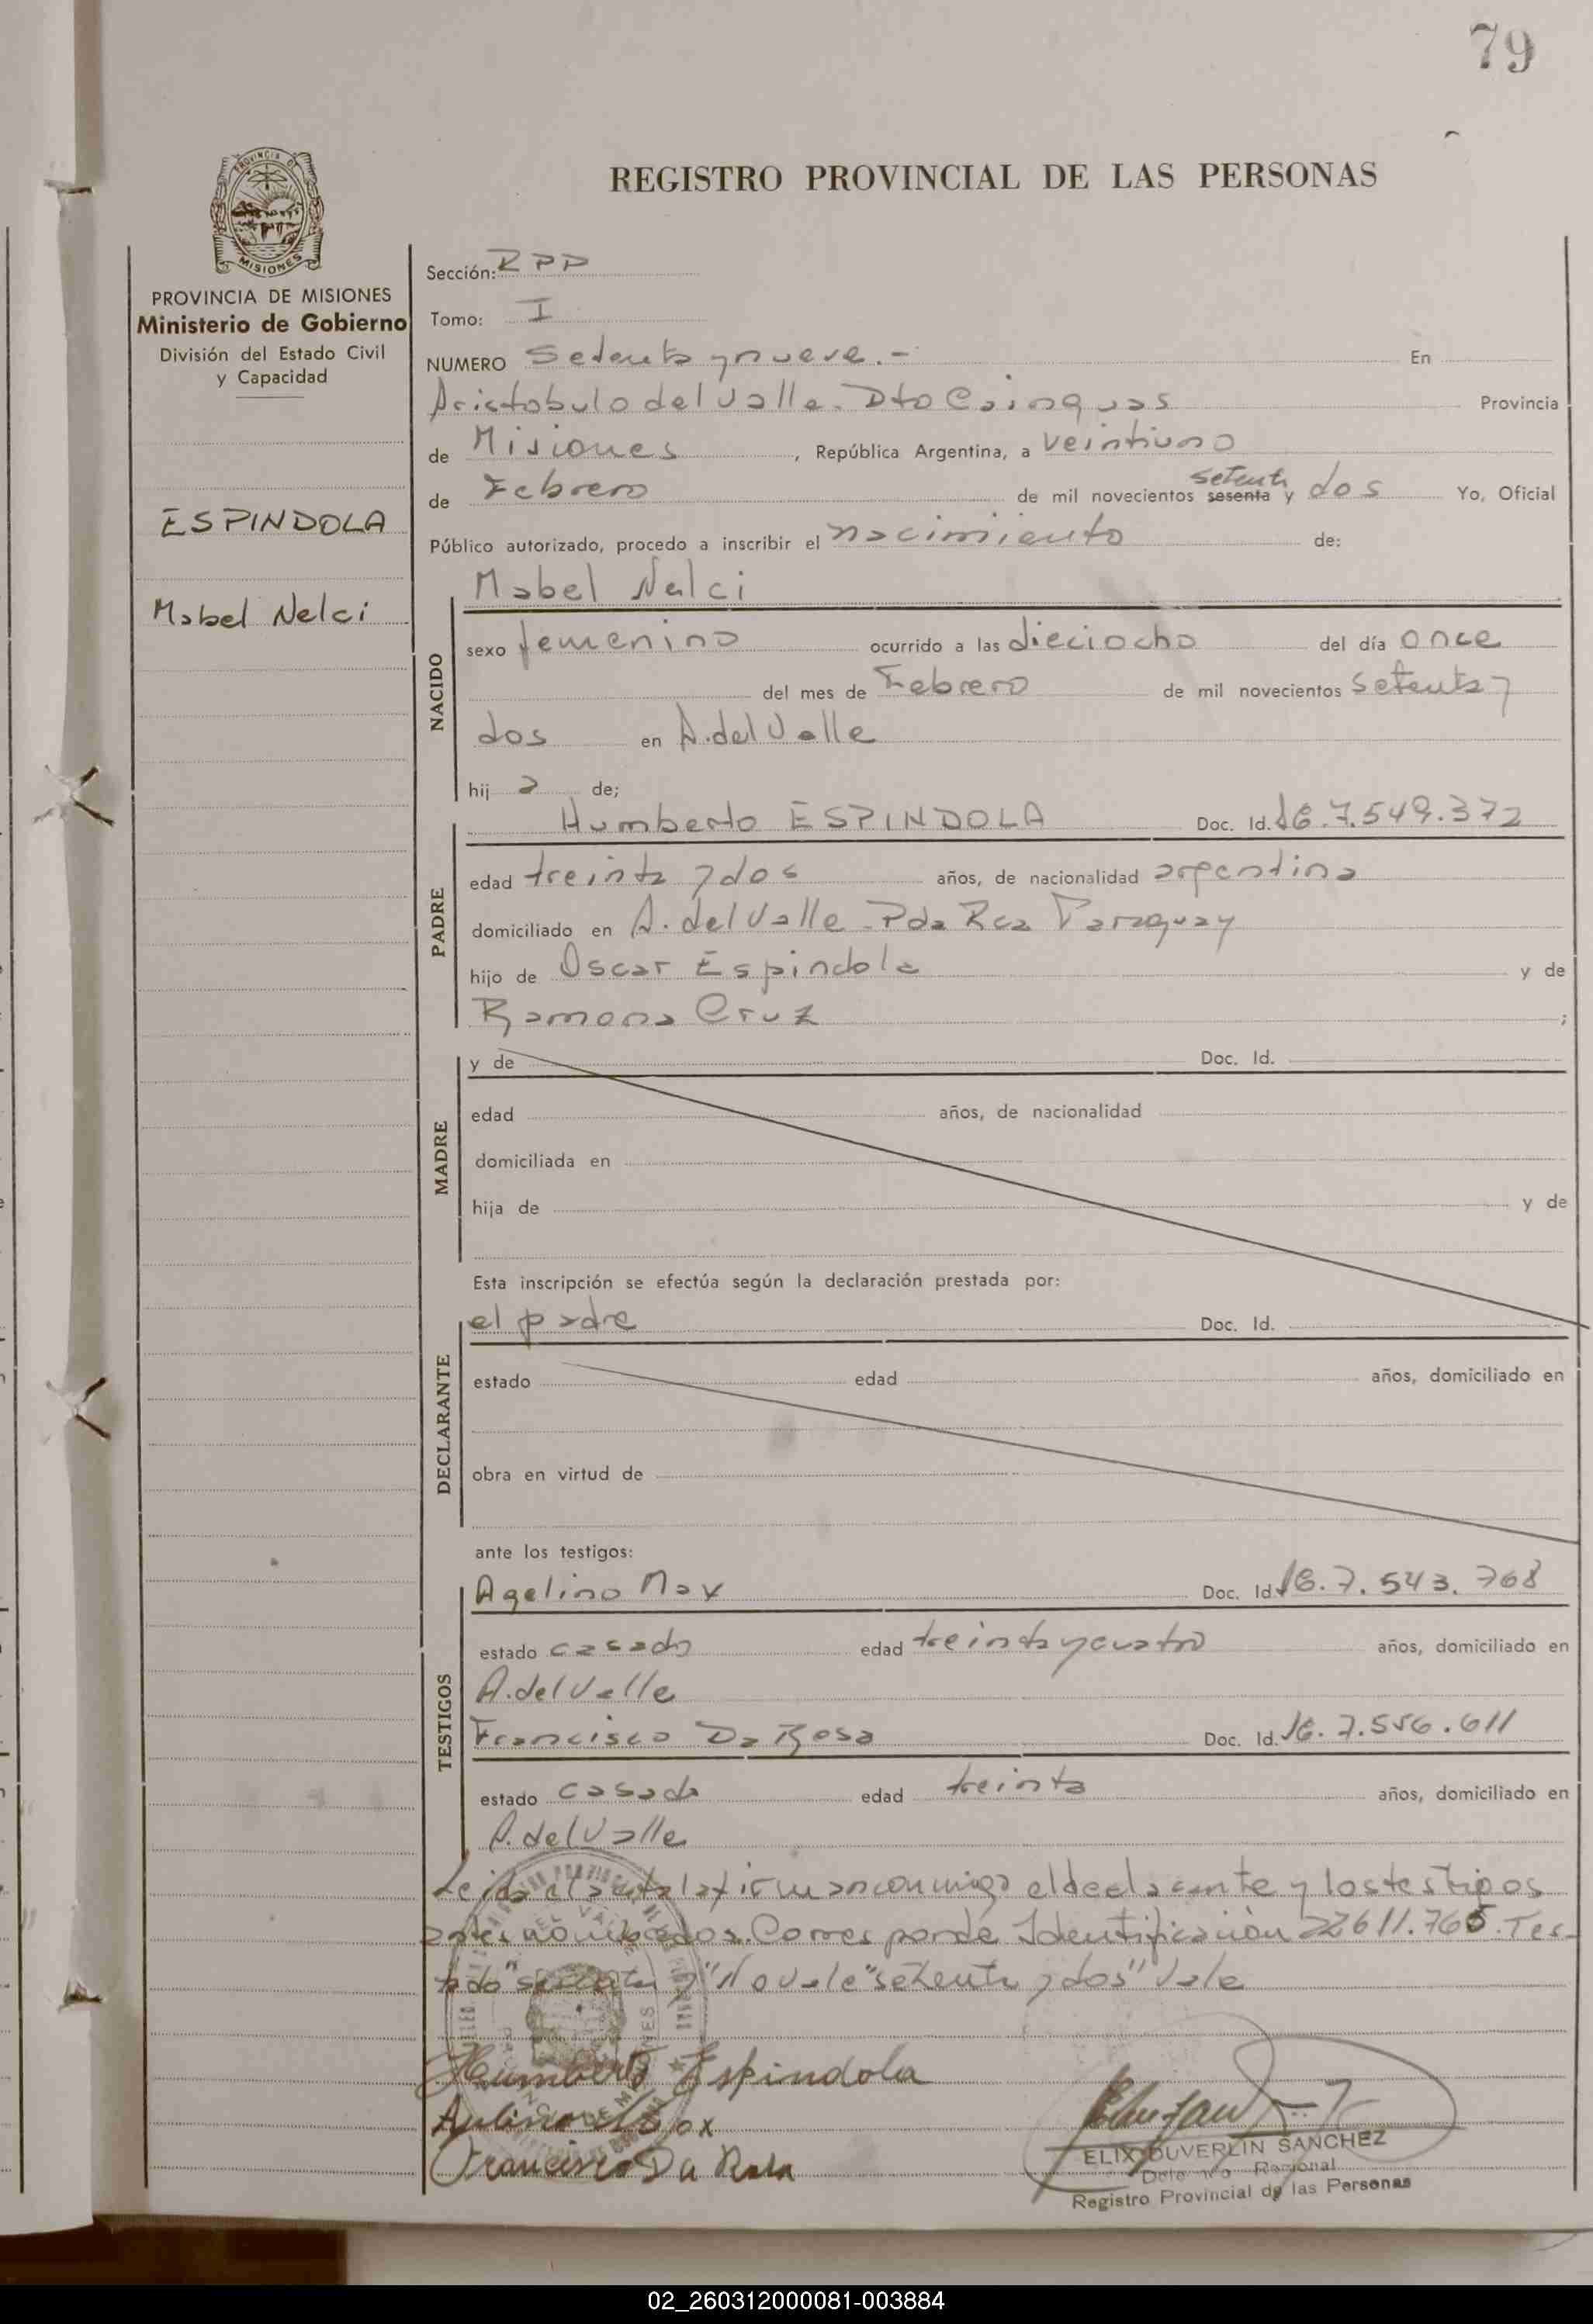 79
REGISTRO PROVINCIAL DE LAS PERSONAS
PROVINCIA DE MISIONES
Ministerio de Gobierno
División del Estado Civil
y Capacidad
ESPINDOLA
Mabel Nelci
Sección: RPP
Tomo: I
NUMERO Setenta y nueve.- En
Aristobulo del Valle. Dto Cainguas Provincia
de Misiones, República Argentina, a veintiuno
setenta
de Febrero de mil novecientos sesenta y dos Yo, Oficial
Público autorizado, procedo a inscribir el nacimiento de:
Mabel Nelci
NACIDO
sexo femenino ocurrido a las dieciocho del día once
del mes de Febrero de mil novecientos setenta y
dos en A. del Valle
hij a de;
Humberto ESPINDOLA Doc. Id. 7.549.372
PADRE
edad treinta y dos años, de nacionalidad argentina
domiciliado en A. del Valle - Pda Rca Paraguay
hijo de Oscar Espindola y de
Ramona Cruz ;
MADRE
y de Doc. Id.
edad años, de nacionalidad
domiciliada en
hija de y de
Esta inscripción se efectúa según la declaración prestada por:
el padre Doc. Id.
DECLARANTE
estado edad años, domiciliado en
obra en virtud de
ante los testigos:
TESTIGOS
Agelino Doc. Id. 7.543.768
estado casado edad treinta y cuatro años, domiciliado en
A. del Valle
Francisco Da Rosa Doc. Id. 7.556.611
estado casado edad treinta años, domiciliado en
A. del Valle
Leida el acta la firman conmigo el declarante y los testigos
antes nombrados. Corresponde Identificación 22611.765. Tes-
tado "sesenta y" No vale "setenta y dos" Vale
Humberto Espindola
Francisco Da Rosa
ELIX DUVERLIN SANCHEZ
Regional
Registro Provincial de las Personas
02_260312000081-003884